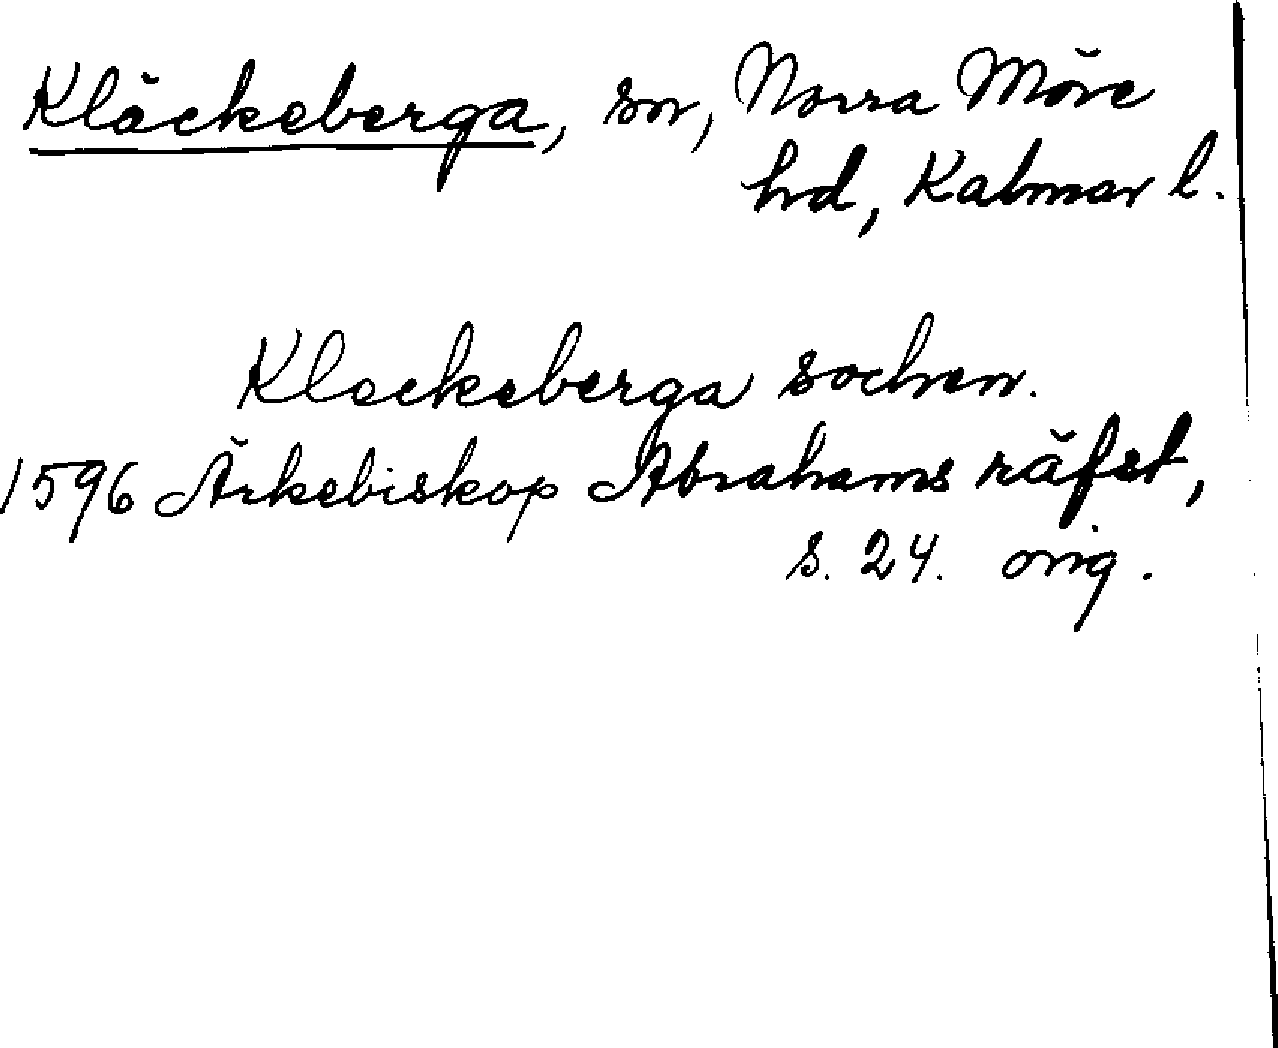 Kläckeberga, sn, Norra Möre
hd, Kalmar l.
Kleckeberga sochen.
1596 Ärkebiskop Abrahams räfst,
s. 24. orig.